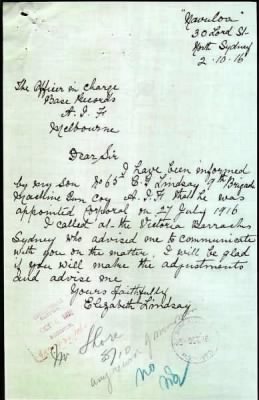 "Navuloa"
30 Lord St
North Sydney
2-10-16
The Officer in Charge
Base Records
A.I.F
Melbourne
Dear Sir
I have been informed
by my Son No 65 E G Lindsay 7th Brigade
Machine Gun Coy A.I.F that he was
appointed Corporal on 27 July 1916
I called at the Victoria Barracks
Sydney who advised me to Communicate
with you on the matter, I will be glad
if you will make the adjustments
and advise me
Yours Faithfully
Elizabeth Lindsay
Mr Shore
5/10
any return
no